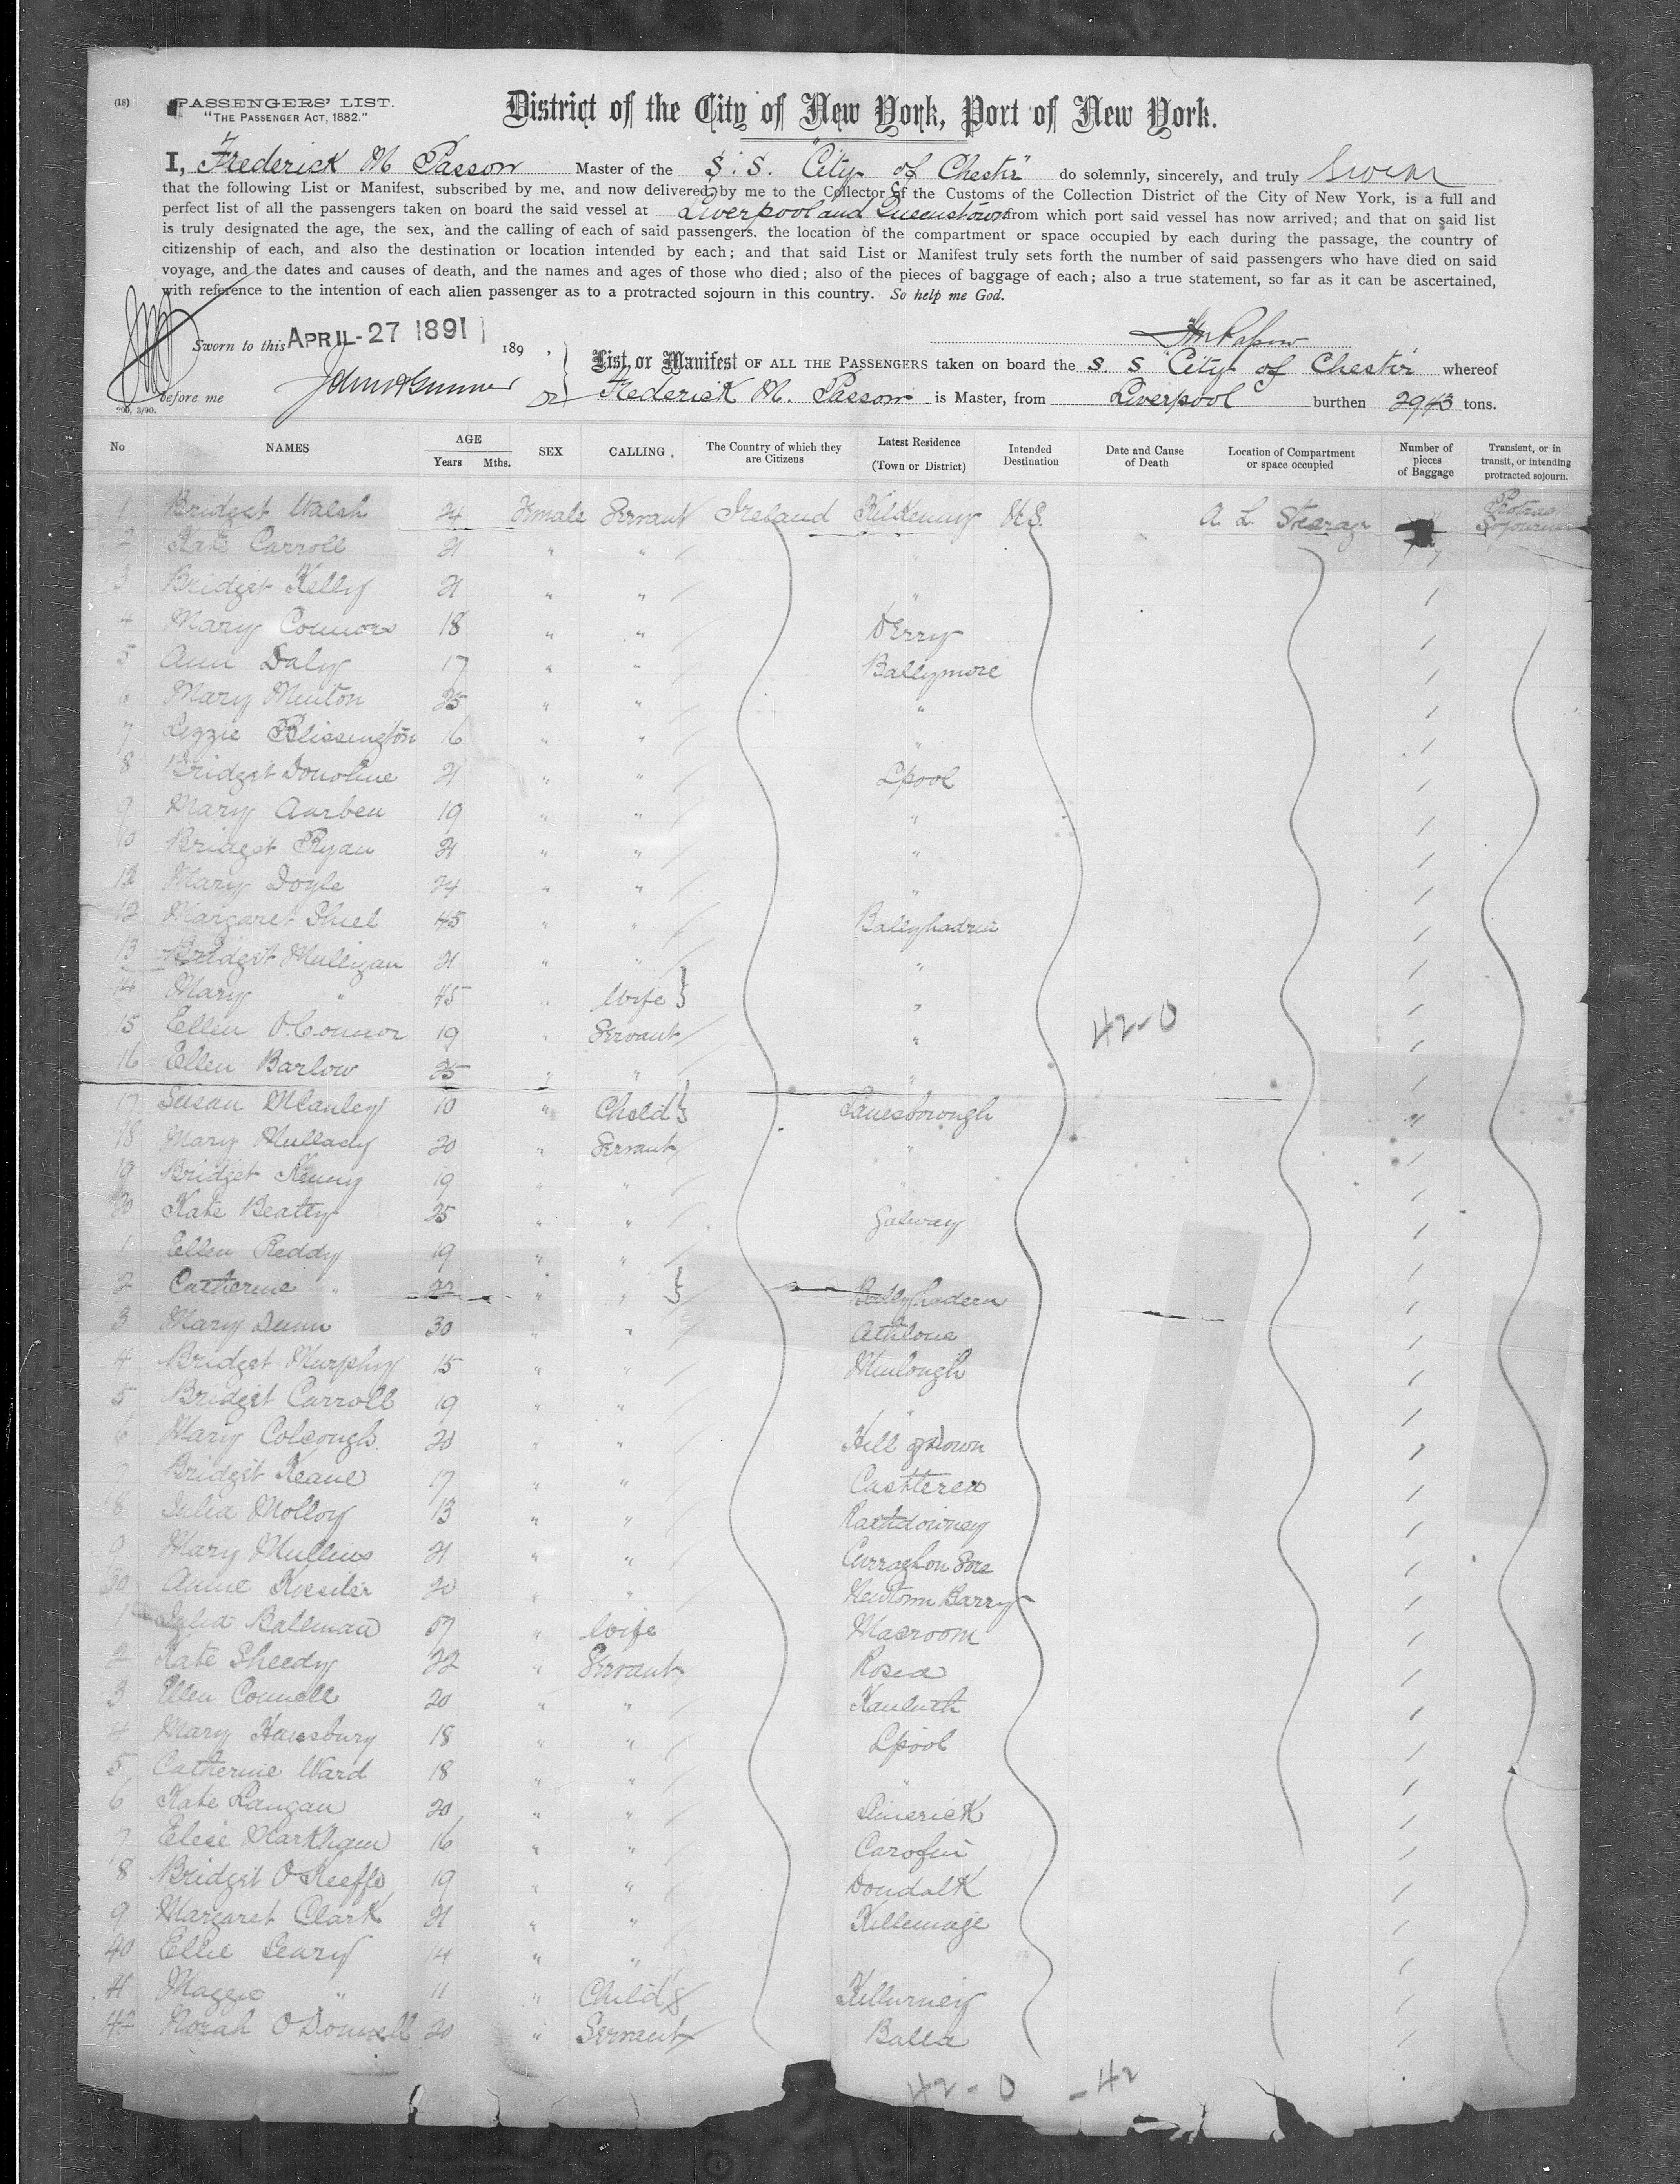 (18)
PASSENGERS' LIST.
"THE PASSENGER ACT, 1882."
District of the City of New York, Port of New York.
I, Frederick M Passow Master of the S.S. "City of Chester" do solemnly, sincerely, and truly swear
that the following List or Manifest, subscribed by me, and now delivered by me to the Collector of the Customs of the Collection District of the City of New York, is a full and
perfect list of all the passengers taken on board the said vessel at Liverpool and Queenstown from which port said vessel has now arrived; and that on said list
is truly designated the age, the sex, and the calling of each of said passengers, the location of the compartment or space occupied by each during the passage, the country of
citizenship of each, and also the destination or location intended by each; and that said List or Manifest truly sets forth the number of said passengers who have died on said
voyage, and the dates and causes of death, and the names and ages of those who died; also of the pieces of baggage of each; also a true statement, so far as it can be ascertained,
with reference to the intention of each alien passenger as to a protracted sojourn in this country. So help me God.
Sworn to this APRIL-27 1891 189 ,
before me
200, 3/90.
List or Manifest OF ALL THE PASSENGERS taken on board the S. S City of Chester whereof
Frederick M. Passow is Master, from Liverpool burthen 2943 tons.
No NAMES AGE Years Mths. SEX CALLING. The Country of which they are Citizens Latest Residence (Town or District) Intended Destination Date and Cause of Death Location of Compartment or space occupied Number of pieces of Baggage Transient, or in transit, or intending protracted sojourn.
1 Bridget Walsh 24 Female Servant Ireland Kilkenny U.S. A L Steerage Protrac Sojourn
2 Kate Carroll 21 " " "
3 Bridget Kelly 21 " " " 1
4 Mary Connors 18 " " Derry 1
5 Ann Daly 17 " " Ballymore 1
6 Mary Minton 25 " " " 1
7 Lizzie Blissington 16 " " " 1
8 Bridget Donohue 21 " " Lpool 1
9 Mary 19 " " " 1
10 Bridget Ryan 21 " " " 1
11 Mary Doyle 24 " " " 1
12 Margaret Shiel 45 " " Ballyhadrin 1
13 Bridget Mulligan 21 " " " 1
14 Mary " 45 " Wife } " 1
15 Ellen O'Connor 19 " Servant " 1
16 Ellen Barlow 25 " " " 1
17 Susan 10 " Child } Lanesborough "
18 Mary Mullady 20 " Servant " 1
19 Bridget Kenny 19 " " " 1
20 Kate Beatty 25 " " Galway 1
1 Ellen Reddy 19 " " 1
2 Catherine " 22 " " } Ballyhadern 1
3 Mary Dunn 30 " " Athlone 1
4 Bridget Murphy 15 " " Menlough 1
5 Bridget Carroll 19 " " " 1
6 Mary Colcough 20 " " Hill of Down 1
7 Bridget Keane 17 " " Castterea 1
8 Julia Molloy 13 " " Rathdowney 1
9 Mary Mullins 21 " " Curraghon 1
30 Annie 20 " " Newtown Barry 1
1 Julia Ballman 57 " Wife Macroom 1
2 Kate Sheedy 22 " Servant Roscd 1
3 Ellen Connell 20 " " Kanturth 1
4 Mary Hansbury 18 " " Lpool 1
5 Catherine Ward 18 " " " 1
6 Kate Langan 20 " " Limerick 1
7 Elese Markham 16 " " Carofin 1
8 Bridget O'Keeffe 19 " " Dondalk 1
9 Margaret Clark 21 " " Killemage 1
40 Ellie Leary 14 " " 1
41 Maggie " 11 " Child } Killurney 1
42 Norah O'Donnell 20 " Servant Balla 1
42-0
42-0 -42